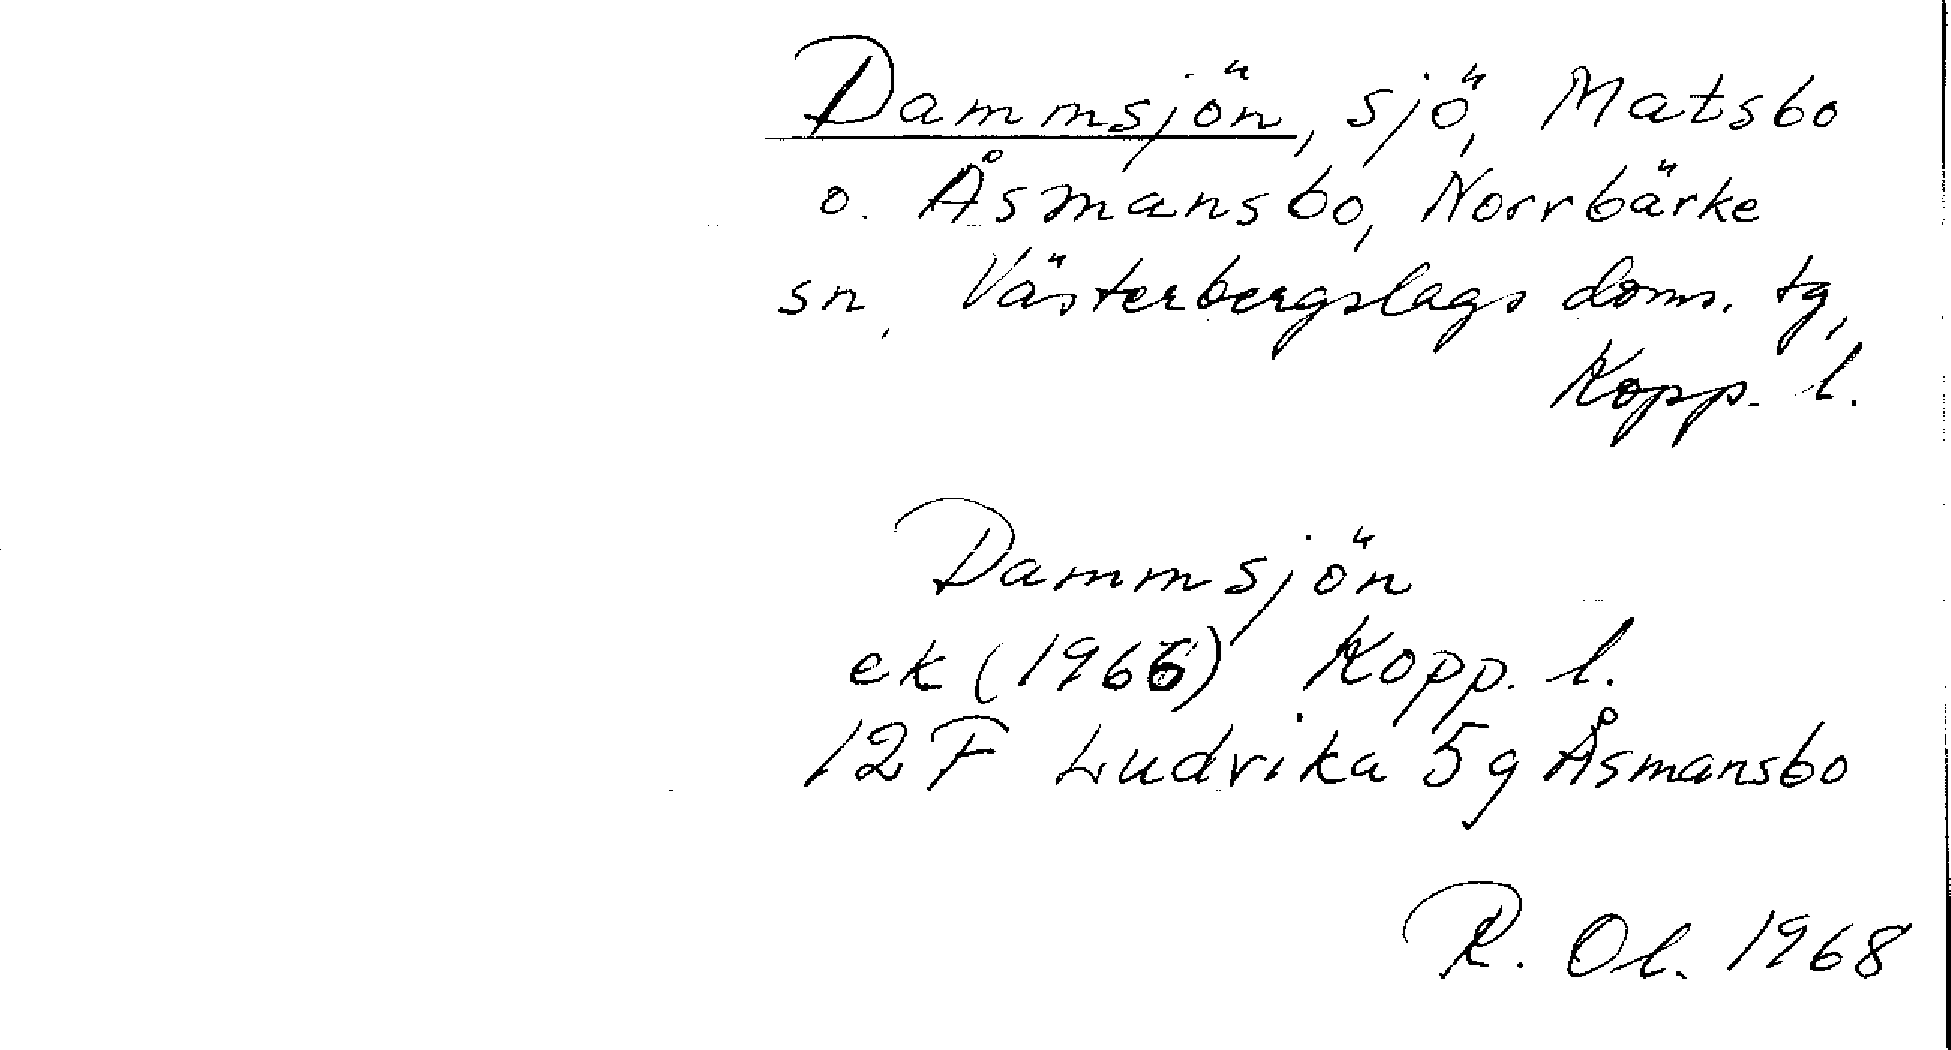 Dammsjön, sjö, Matsbo
o. Åsmansbo, Norrbärke
sn, Västerbergslags doms. tg,
Kopp. l.
Dammsjön
ek (1966) Kopp. l.
12F Ludvika 5g Åsmansbo
R. Ol. 1968